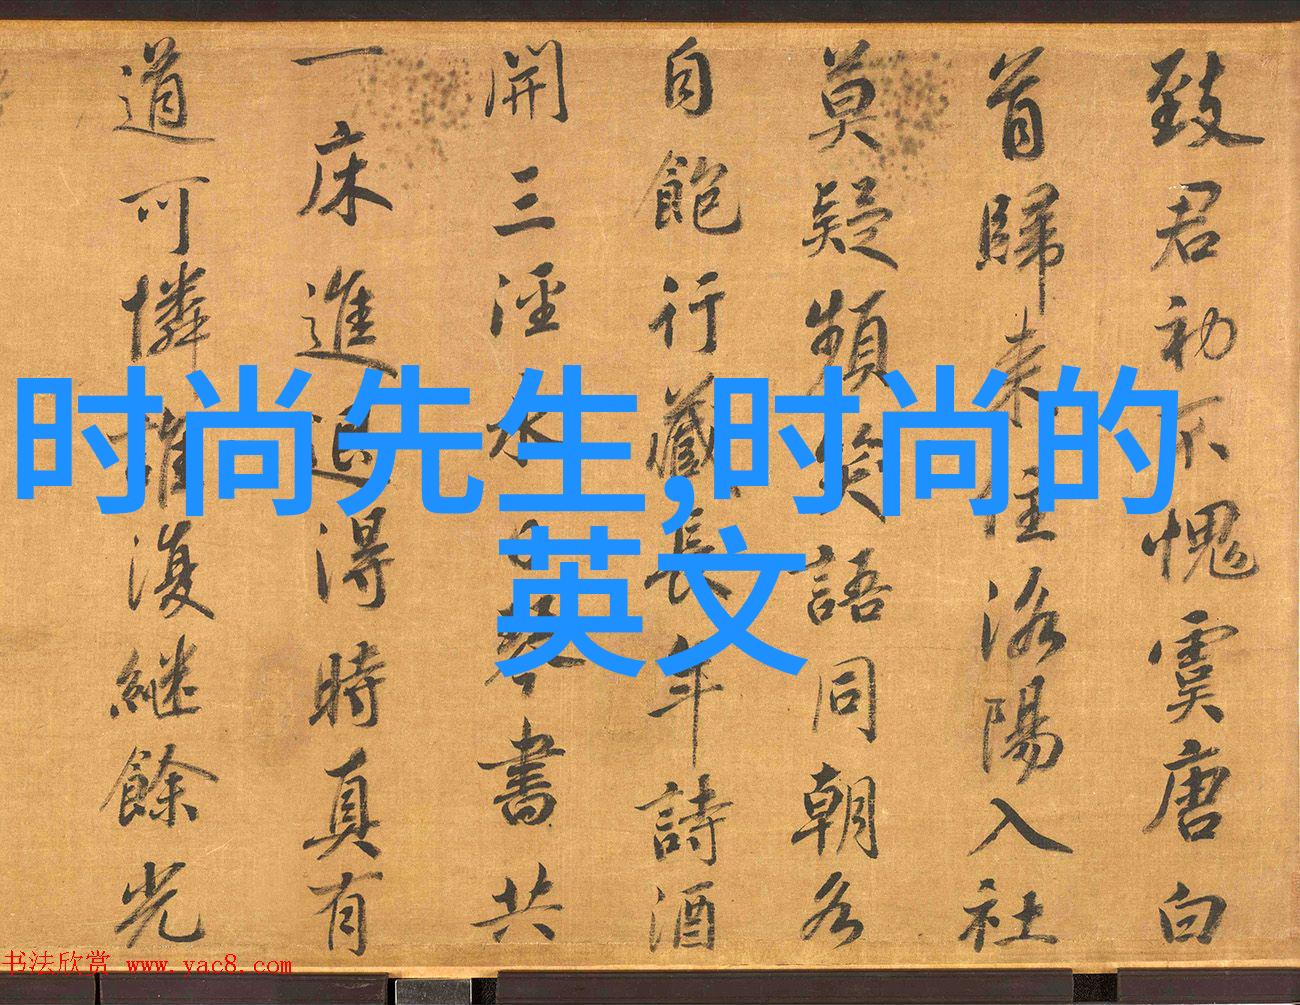 致君初不愧虞唐白
首歸来住洛陽入社
莫疑頻笑語同朝各
自飽行藏長年詩酒
開三涇永日琴書共
一床進退得時真有
道可憐誰復継餘光
时尚先生,时尚的
英文
书法欣赏 www.yac8.com